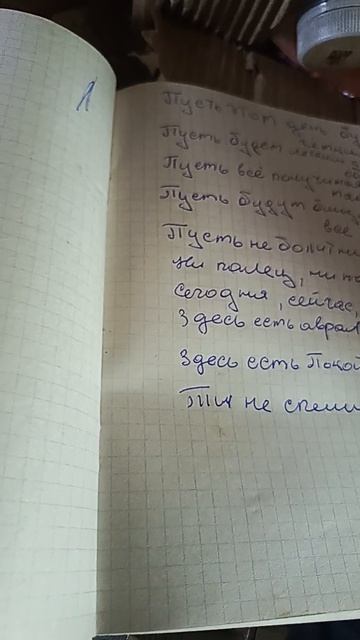 1
Пусть этот день бу
Пусть будет лёгким
Пусть всё получит
Пусть будут бли
всё
Пусть не болит ни
ни палец, ни по
сегодня, сейчас,
Здесь есть аврал
Здесь есть Покой
Ты не спеши